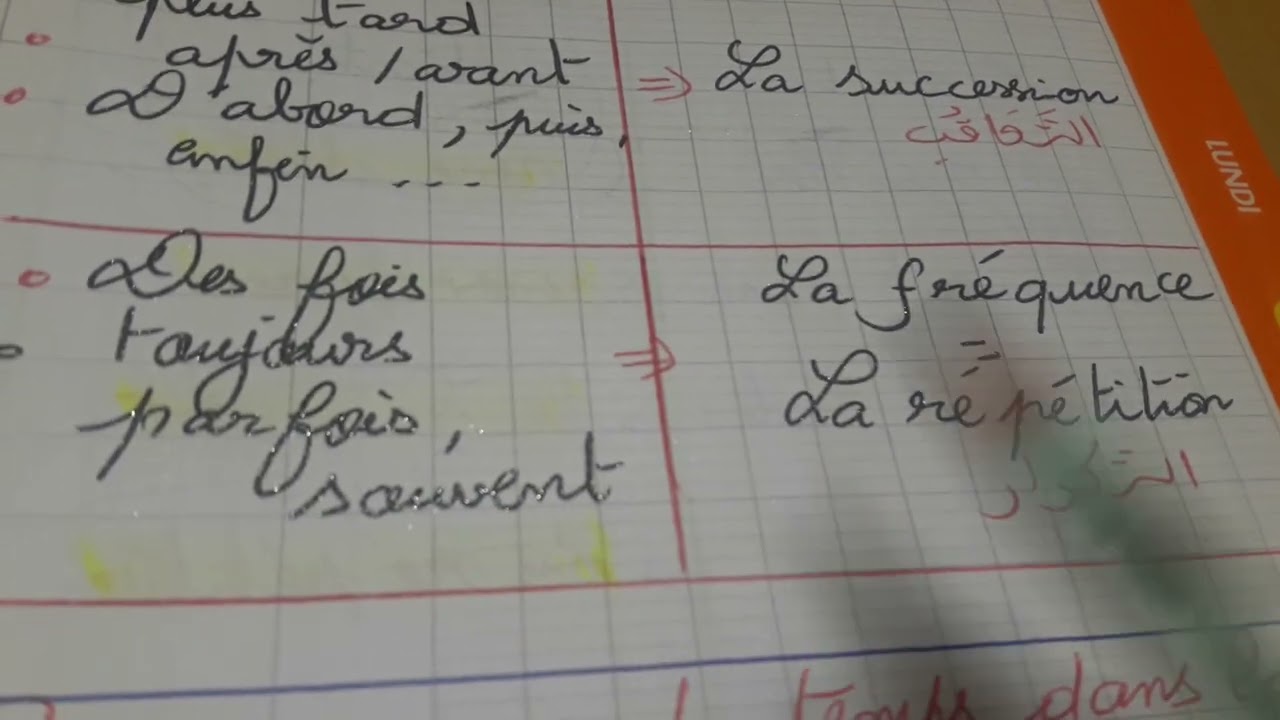 plus tard
après / avant
D'abord, puis,
enfin ...
⇒ La succession
التَّعَاقُب
Des fois
toujours
parfois,
souvent
⇒ La fréquence
=
La répétition
التَّكرار
temps dans
LUNDI